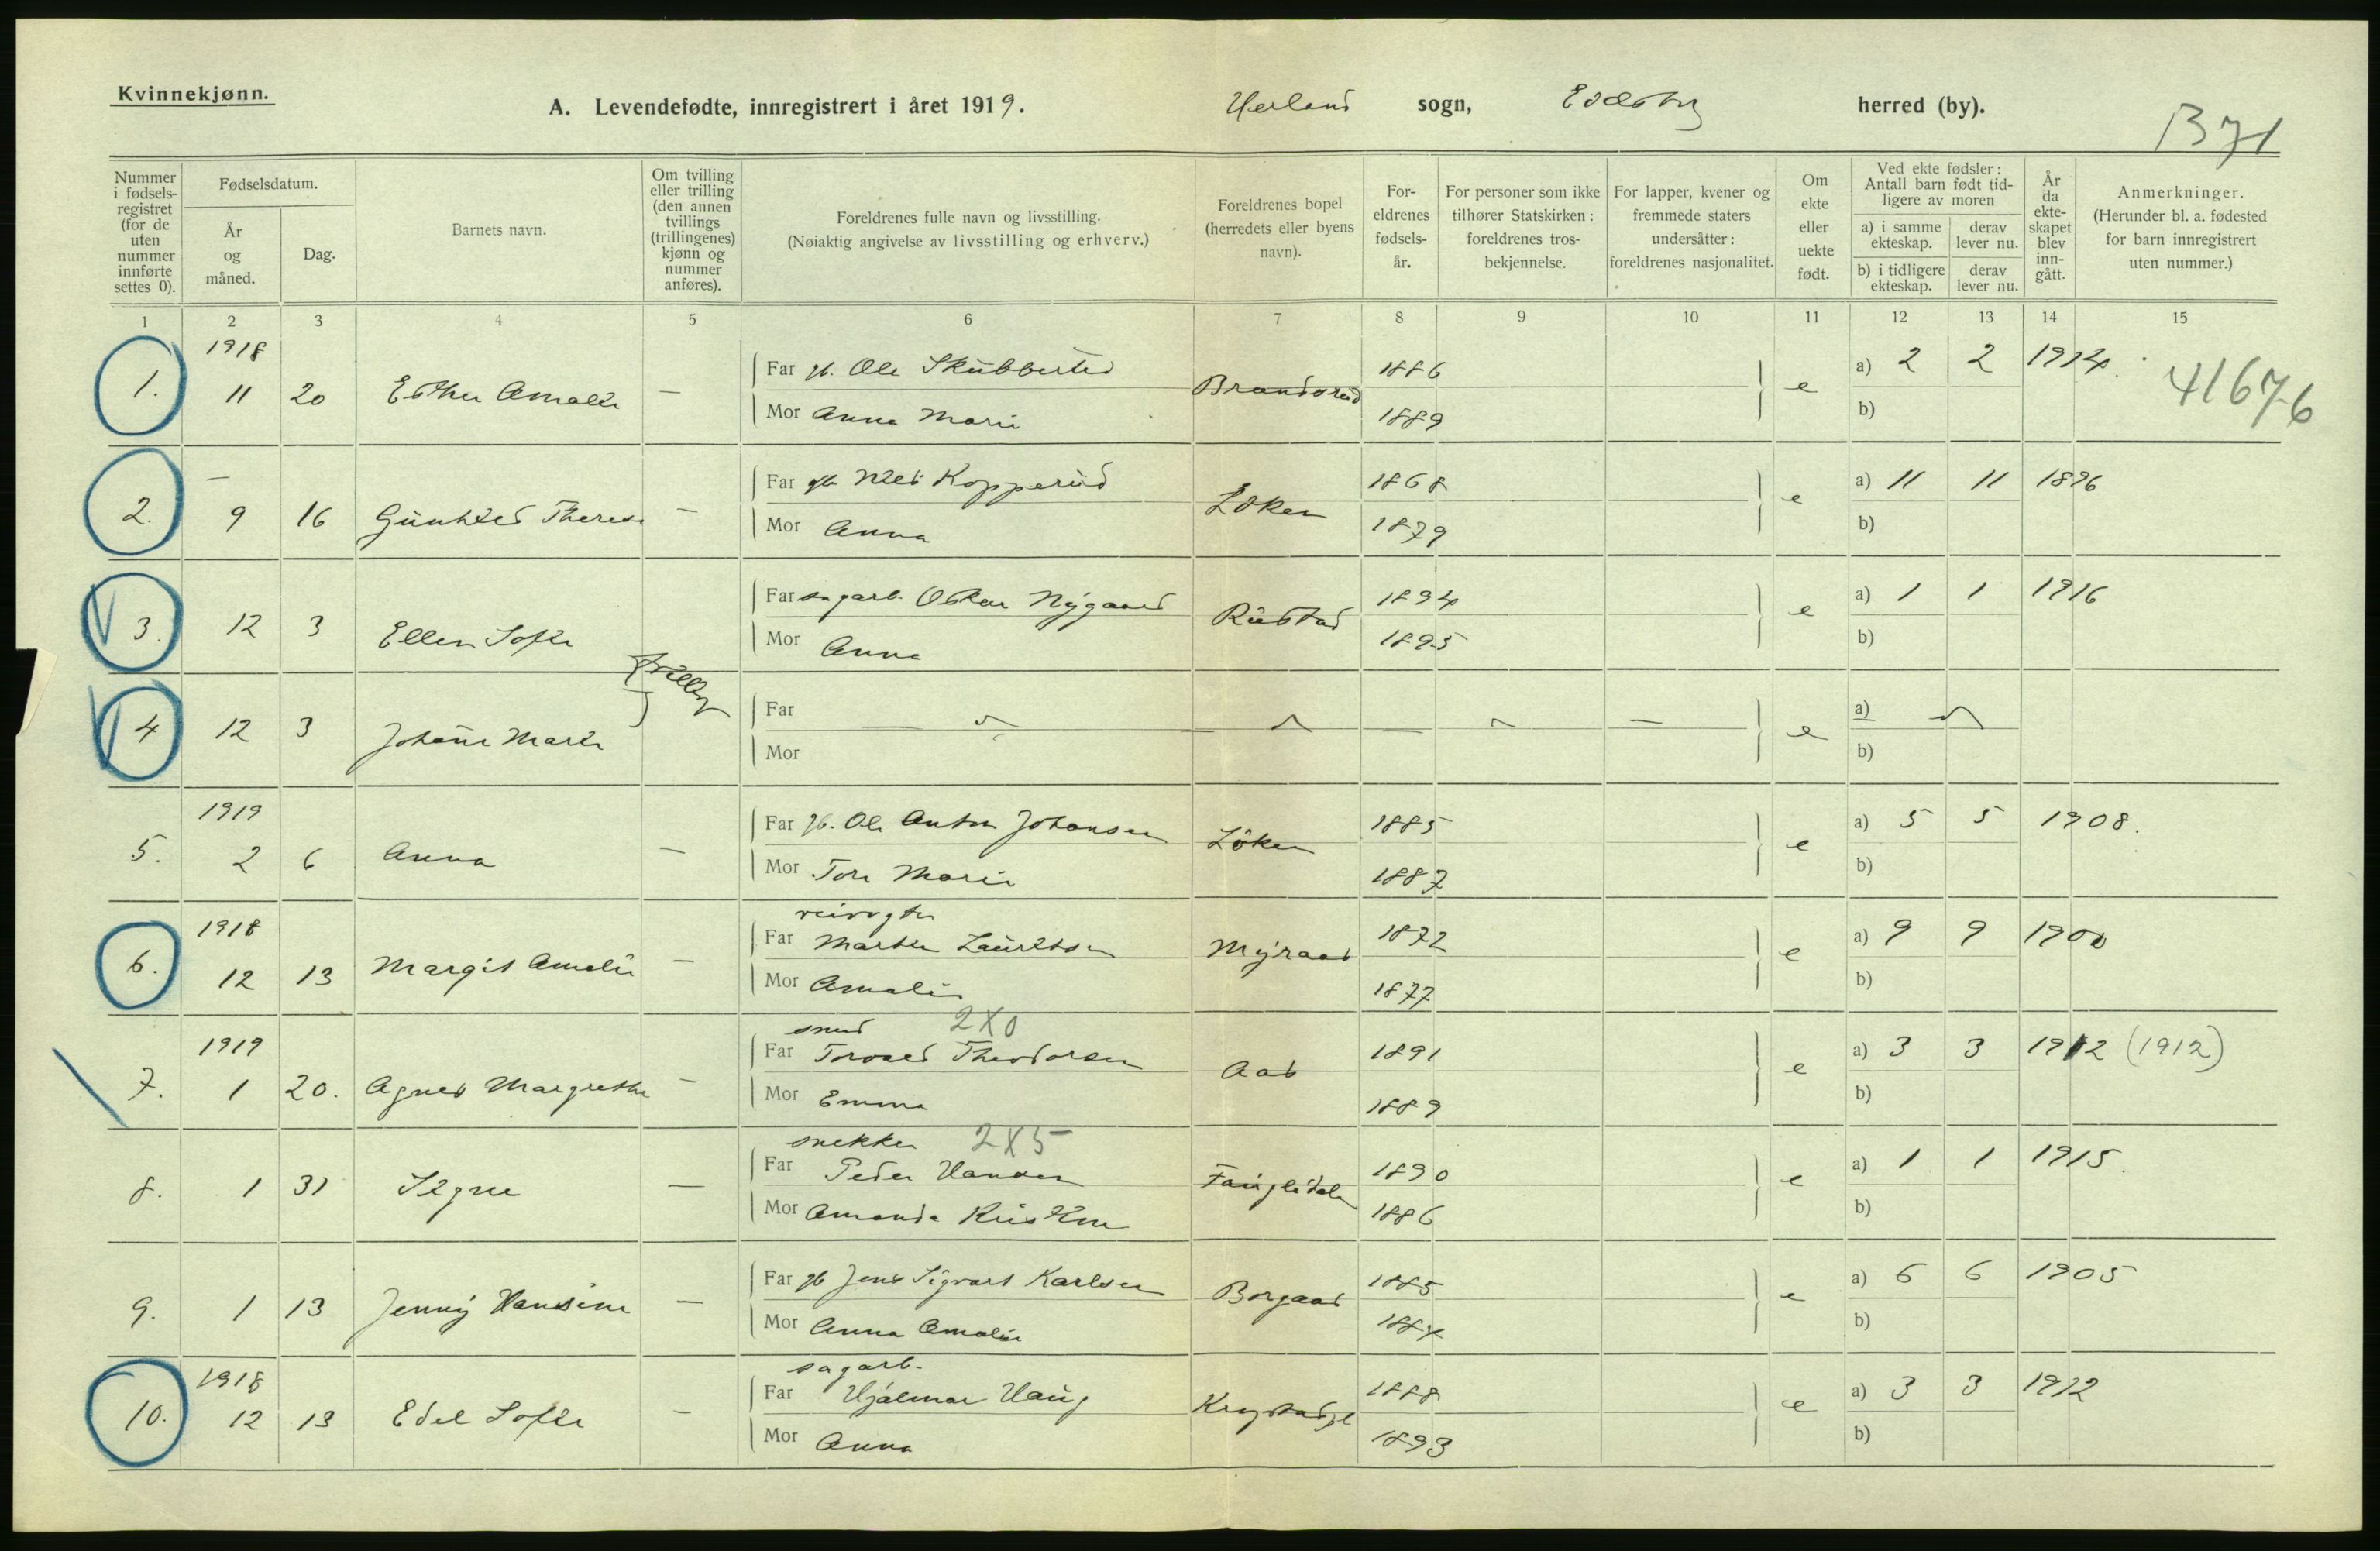 Kvinnekjønn.
A. Levendefødte, innregistrert i året 1919. Herland sogn, Eidsberg herred (by).
B 71
Nummer i fødselsregistret (for de uten nummer innførte settes 0).
Fødselsdatum.
År og måned.
Dag.
Barnets navn.
Om tvilling eller trilling (den annen tvillings (trillingenes) kjønn og nummer anføres).
Foreldrenes fulle navn og livsstilling.
(Nøiaktig angivelse av livsstilling og erhverv.)
Foreldrenes bopel (herredets eller byens navn).
Foreldrenes fødselsår.
For personer som ikke tilhører Statskirken: foreldrenes trosbekjennelse.
For lapper, kvener og fremmede staters undersåtter: foreldrenes nasjonalitet.
Om ekte eller uekte født.
Ved ekte fødsler: Antall barn født tidligere av moren
a) i samme ekteskap.
derav lever nu.
b) i tidligere ekteskap.
derav lever nu.
År da ekteskapet blev inngått.
Anmerkninger.
(Herunder bl. a. fødested for barn innregistrert uten nummer.)
1 2 3 4 5 6 7 8 9 10 11 12 13 14 15
1918
1. 11 20 Esther Amalie — Far gb. Ole Skubberud Brandsrud 1886 e a) 2 2 1914.
Mor Anna Marie 1889 b)
41676
2. — 9 16 Gunhild Therese — Far gb Nils Kopperud Løken 1868 e a) 11 11 1896
Mor Anna 1879 b)
3. 12 3 Ellen Sofie Far sagarb. Oskar Nygaard Rustad 1894 e a) 1 1 1916
Mor Anna 1895 b)
tvilling
4 12 3 Johanne Marie Far e a)
Mor b)
1919
5. 2 6 Anna — Far gb. Ole Anton Johansen Løken 1885 e a) 5 5 1908.
Mor Tora Marie 1887 b)
1918
veivogter
6. 12 13 Margit Amalie — Far Martin Lauritsen Myraas 1872 e a) 9 9 1900
Mor Amalie 1877 b)
1919
smed 2X0
7. 1 20. Agnes Margrethe — Far Torvald Theodorsen Aas 1891 e a) 3 3 1912 (1912)
Mor Emma 1889 b)
snekker 2X5
8. 1 31 Signe — Far Peder Hansen 1890 e a) 1 1 1915.
Mor Amanda Kristine 1886 b)
9. 1 13 Jenny Hansine — Far gb Jens Sigvart Karlsen Borgaas 1885 e a) 6 6 1905
Mor Anna Amalie 1884 b)
1918
sagarb.
10. 12 13 Edel Sofie — Far Hjalmar Haug 1888 e a) 3 3 1912
Mor Anna 1893 b)